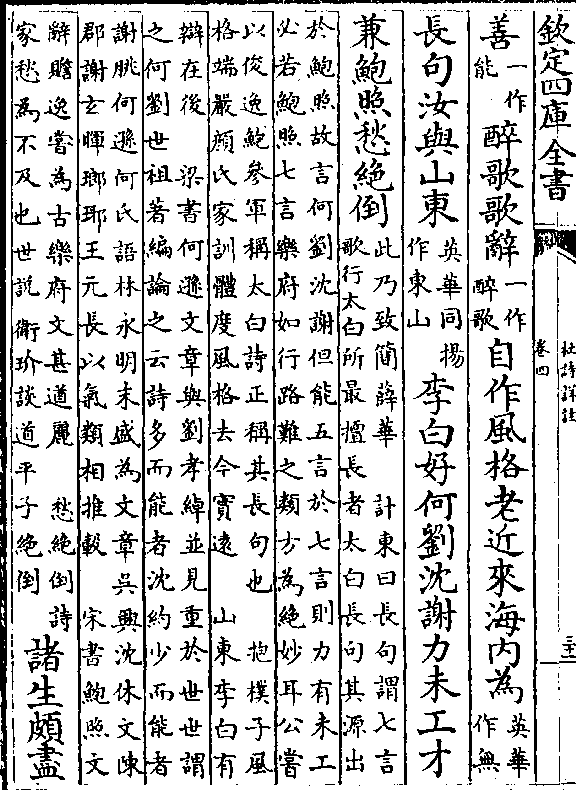 欽定四庫全書
杜詩詳註
卷四
善一作能醉歌歌辭一作醉歌自作風格老近來海内為英華作無
長句汝與山東英華同揚作東山李白好何劉沈謝力未工才
兼鮑照愁絶倒此乃致簡薛華 計東曰長句謂七言
歌行太白所最擅長者太白長句其源出
於鮑照故言何劉沈謝但能五言於七言則力有未工
必若鮑照七言樂府如行路難之類方為絶妙耳公嘗
以俊逸鮑參軍稱太白詩正稱其長句也 抱樸子風
格端嚴顔氏家訓體度風格去今實遠 山東李白有
辯在後 梁書何遜文章與劉孝綽並見重於世世謂
之何劉世祖著編論之云詩多而能者沈約少而能者
謝朓何遜何氏語林永明末盛為文章吳興沈休文陳
郡謝玄暉瑯琊王元長以氣類相推轂 宋書鮑照文
辭贍逸嘗為古樂府文甚遒麗 愁絶倒詩
家愁為不及也世説衛玠談道平子絶倒
諸生頗盡